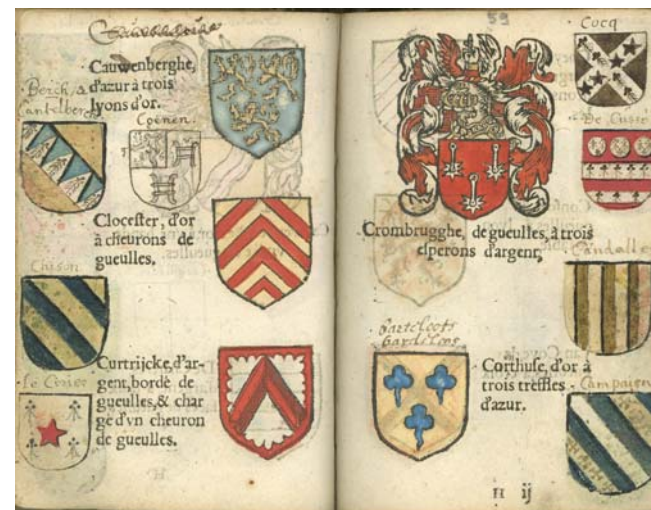 Cauwenberghe
Cauwenberghe,
d'azur à trois
lyons d'or.
Berch, &
Cantelberg
Coenen.
Clocester, d'or
à cheurons de
gueulles.
Chison
Curtrijcke, d'ar-
gent, bordé de
gueulles, & char
gé d'vn cheuron
de gueulles.
59
Cocq
Crombrugghe, de gueulles, à trois
esperons d'argent,
Candalle
Corthuse, d'or à
trois treffles
d'azur.
H ij